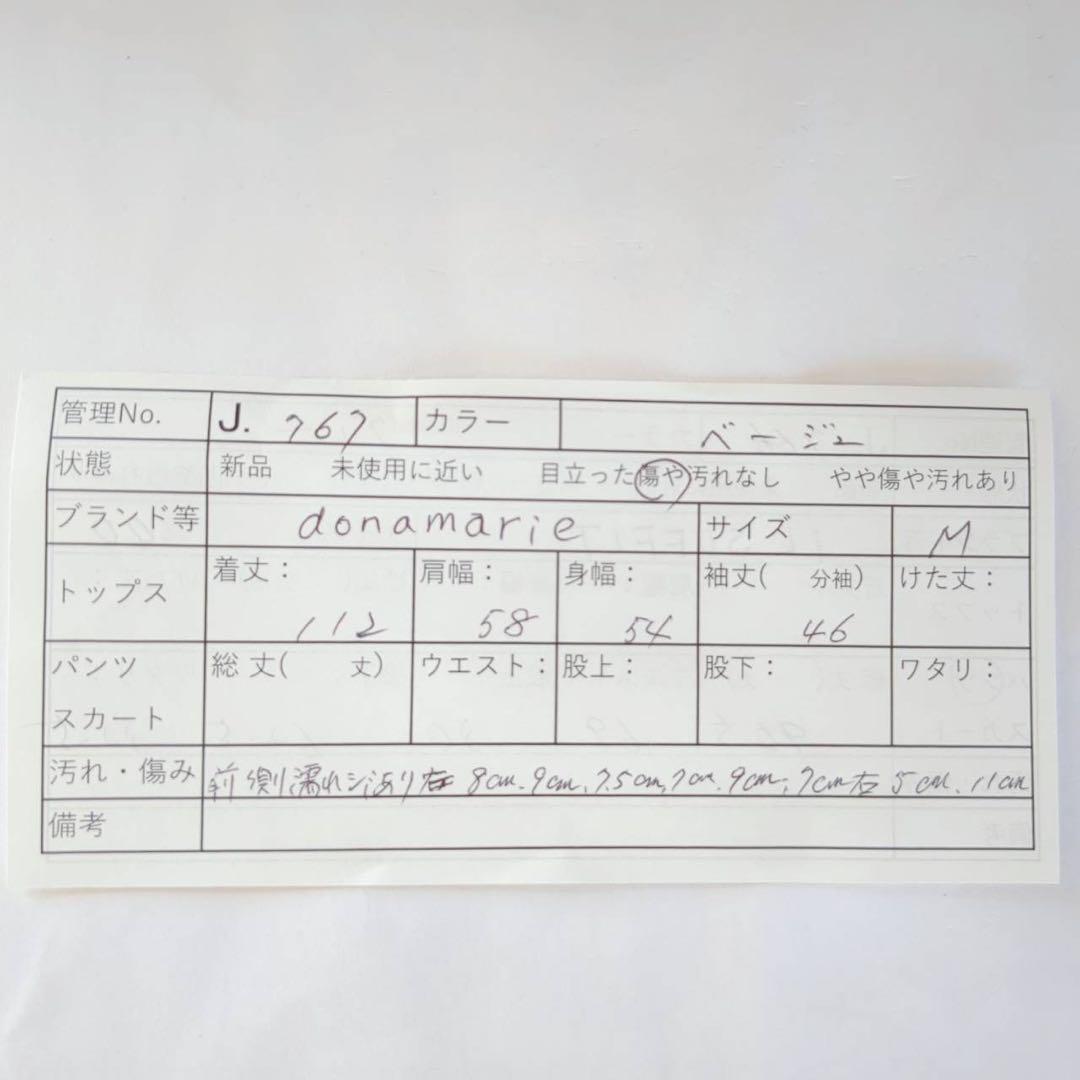 管理No. J. 767 カラー ベージュ
状態 新品 未使用に近い 目立った傷や汚れなし やや傷や汚れあり
ブランド等 donamarie サイズ M
トップス 着丈： 肩幅： 身幅： 袖丈( 分袖) けた丈：
112 58 54 46
パンツ 総丈( 丈) ウエスト： 股上： 股下： ワタリ：
スカート
汚れ・傷み 前側濡れシミあり 8cm、9cm、7.5cm、7cm、9cm、7cm 右 5cm、11cm
備考